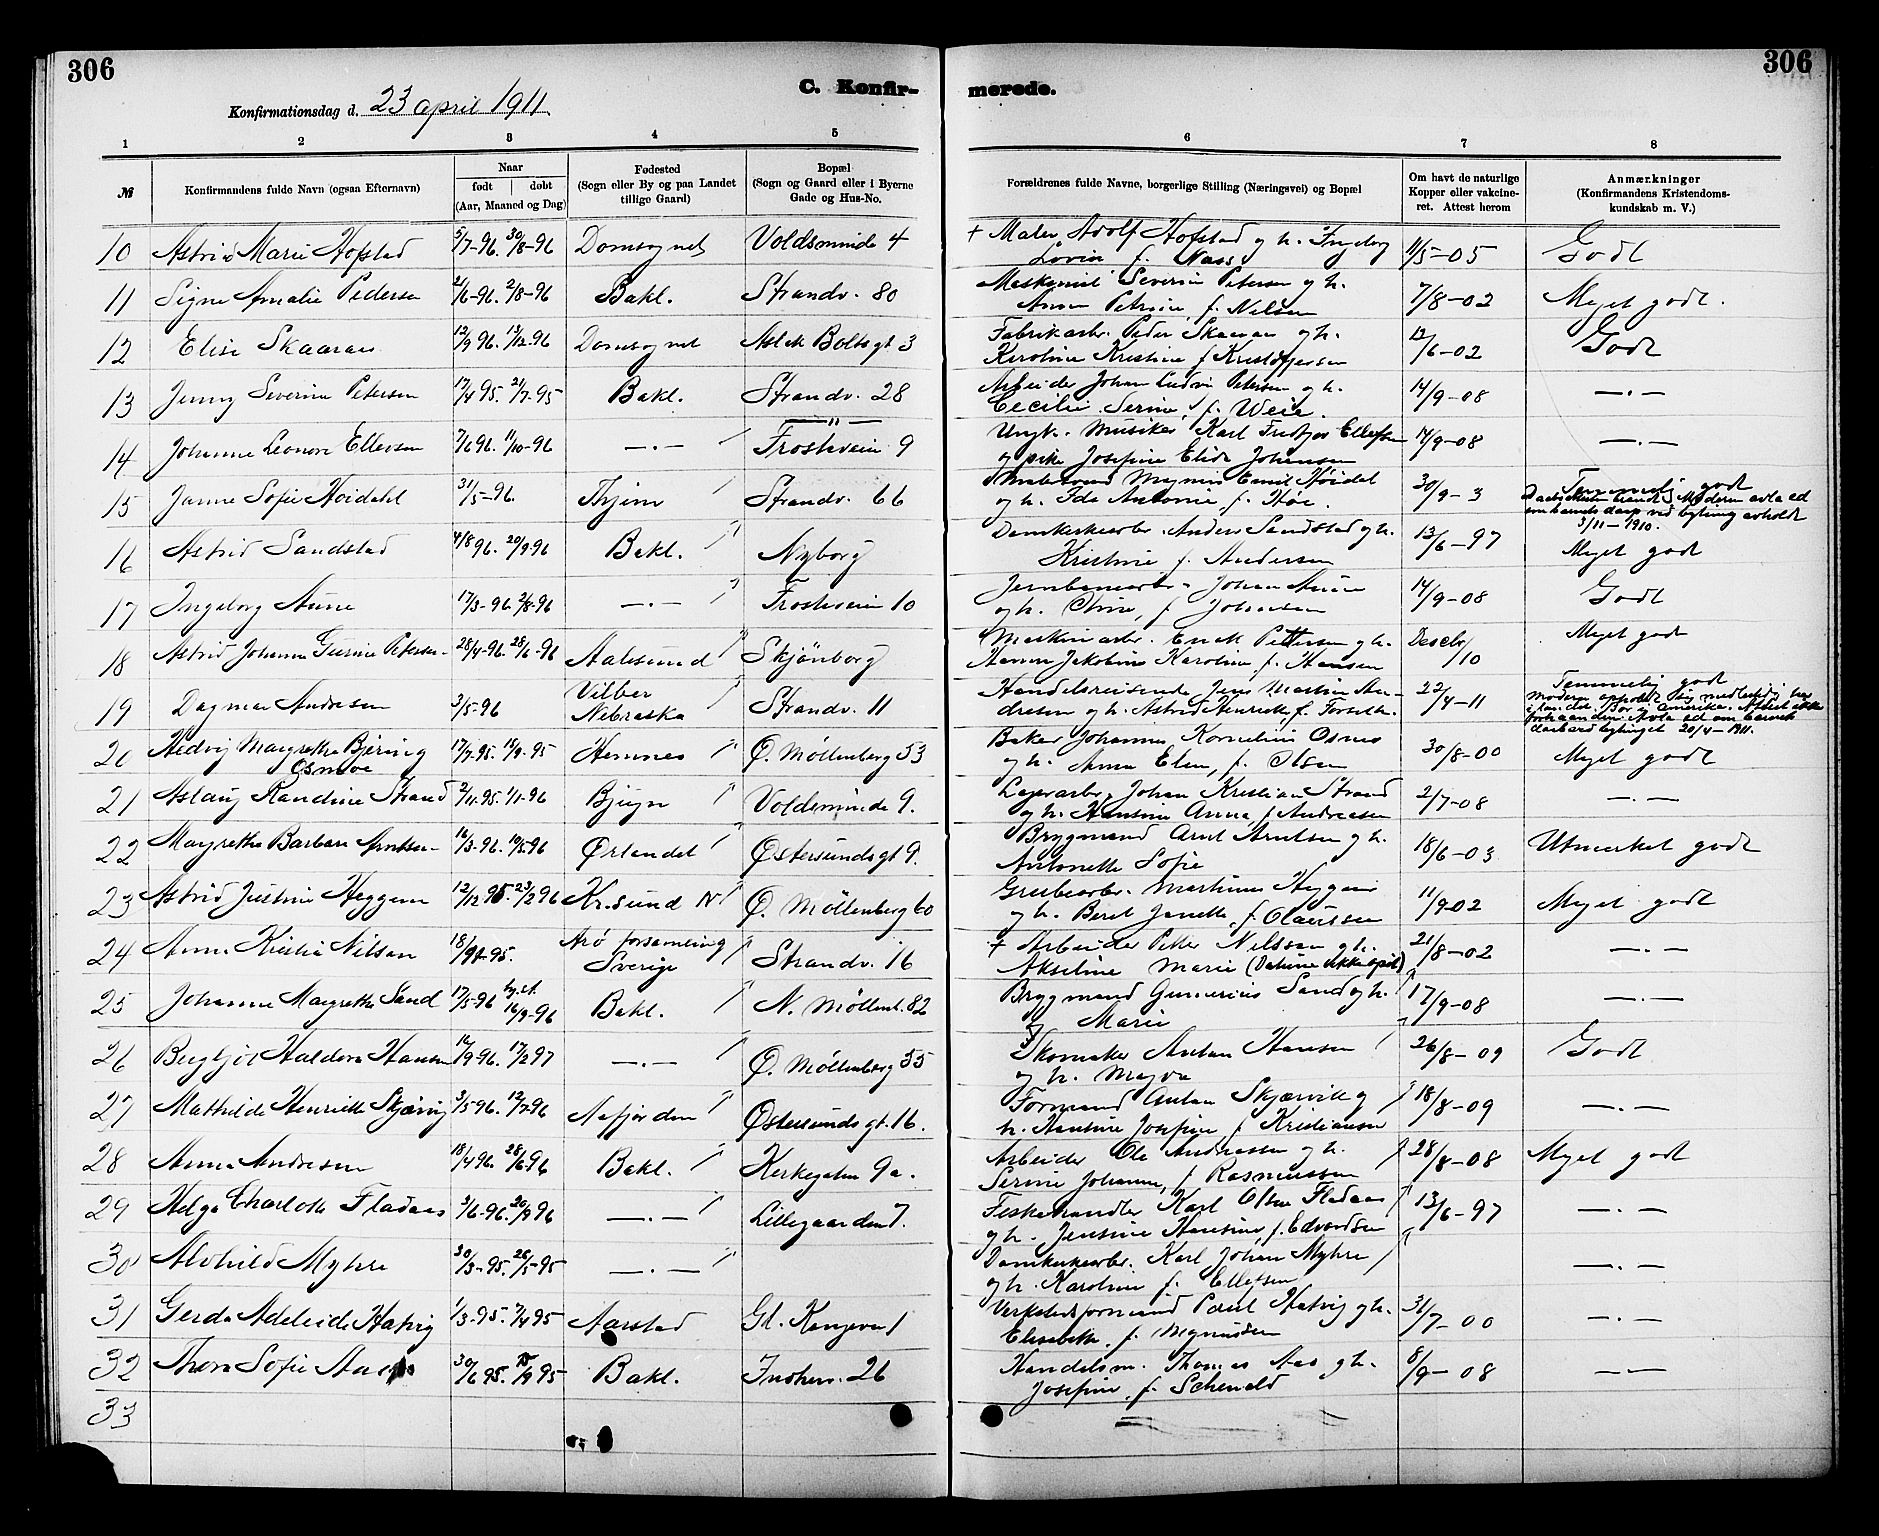 306
306
C. Konfir- merede.
Konfirmationsdag d. 23 april 1911.
1 2 3 4 5 6 7 8
№
Konfirmandens fulde Navn (ogsaa Efternavn)
Naar
født | døbt
(Aar, Maaned og Dag)
Fødested
(Sogn eller By og paa Landet
tillige Gaard)
Bopæl
(Sogn og Gaard eller i Byerne
Gade og Hus-No.
Forældrenes fulde Navne, borgerlige Stilling (Næringsvei) og Bopæl
Om havt de naturlige
Kopper eller vakcine-
ret. Attest herom
Anmærkninger
(Konfirmandens Kristendoms-
kundskab m. V.)
10 Astrid Marie Hofstad 5/7-96. 30/8-96 Domsognet Voldsminde 4 + Maler Adolf Hofstad og h. Ingeborg 11/5-05 Godt
Lovise f. Næss
11 Signe Amalie Pedersen 2/6-96. 2/8-96 Bakl. Strandv. 80 Maskinist Severin Petersen og h. 7/8-02 Meget godt.
Anna Petrine, f. Nilsen
12 Elise Skaaran 12/9 96. 13/12-96 Domsognet Aslak Boltsgt 3 Fabrikarb. Peder Skaaran og h. 12/6-02 Godt
Karoline Kristine f. Kristoffersen
13 Jenny Severine Petersen 17/4 95. 21/7-95 Bakl. Strandv. 28 Arbeider Johan Ludvi Petersen og h. 14/9-08 —.—
Cecilie Serine, f. Weie.
14 Johanne Leonore Ellevsen 7/6 96. 11/10-96 —.— Frostaveien 9 Ungk. Musiker Karl Fredtjof Ellefsen 14/9-08 —.—
og pike Josefine Elida Johansen
15 Janna Sofie Høidahl 31/5-96. Thjem Strandv. 66 Magnus Emil Høidal 30/9-3 Temmelig godt
og h. Ida Antonie f. Høe. Moderen avla ed
om barnets daap ved avholdt
3/11-1910.
16 Astrid Sandstad 4/8 96. 20/9-96 Bakl. Nyborg Damkirkearb. Anders Sandstad og h. 13/6-97 Meget godt
Kristine f. Andersen
17 Ingeborg Aune 17/3-96. 2/8-96 —.— Frostaveien 10 Jernbanearb. Johan Aune 14/9-08 Godt
og h. Oline, f. Johansen
18 Astrid Johanne Petersen 28/4-96. 28/6-96 Aalesund Skjønborg Maskinarb. Enok Pettersen og h. /10 Meget godt
Hanna Jakobine Karoline, f. Hansen
19 Dagmar Andresen 3/5-96 Vilber Strandv. 11 Handelsreisende Jens Martin An- 22/4-11 Temmelig godt
Nebraska dresen og h. Astrid Henriette, f. Forseth.
Moderen opholdt sig
i landet. Bor i Amerika. Attest ikke
forhaanden. Avla ed om barnets
20/4-1911.
20 Hedvig Margrethe Bjering 17/7-95. 15/9-95 Hemnes Ø. Møllenberg 53 Baker Johannes Kornelius Osnes 30/8-00 Meget godt
Osmoe og h. Anna Elen, f. Olsen
21 Aslaug Randine Strand 2/11-95. 1/1-96 Bjugn Voldsminde 9. Lagerarb. Johan Kristian Strand 2/7-08 —.—
og h. Hansine Anna, f. Andreasen
22 Margrethe Barbara Arntsen 16/3-96. 10/5 96 Ørlandet Østersundsgt 9. Brygmand Arnt Arntsen og h. 18/6-03 Utmerket godt
Antonette Sofie
23 Astrid Justine Heggem 12/12 95. 23/2 96 Kr.sund N Ø. Møllenberg 60 Grubearb. Martinus Heggem 11/9-02 Meget godt
og h. Beret Janette f. Olaussen
24 Anna Kristia Nilsen 18/9-95. Arø forsamling Strandv. 16 + Arbeider Petter Nilssen og h. 21/8-02 —.—
Sverige Akseline Marie (Datine ikke opl.)
25 Johanne Margrethe Sand 17/5-96 16/9-96 Bakl. N. Møllenb. 82 Bryggmand Gunerius Sand og h. 17/9-08 —.—
Marie
26 Bergljot Haldora Hansen 16/9-96. 17/2 97 —.— Ø. Møllenberg 55 Skomaker Anton Hansen 26/8-09 Godt
og h. Magda
27 Mathilde Henriette Skjærvig 3/5-96. 12/7-96 Aafjorden Østersundsgt. 16. Formand Anton Skjærvik og 18/8-09 —.—
h. Hansine Josefine f. Kristiansen
28 Anna Andresen 18/4 96. 28/6 96 Bakl. Kirkegaten 9a. Arbeider Ole Andreassen og h. 28/8-08 Meget godt
Serine Johanne, f. Rasmussen
29 Helga Charlotte Fladaas 3/6-96. 20/9 96 —.— Lillegaarden 7. Fiskehandler Karl Olsen Fladaas 13/6-97 —.—
og h. Jensine Hansine, f. Edvardsen
30 Alvhild Myhre 30/3-95. 26/5-95 —.— Damkirkearb. Karl Johan Myhre —.—
og h. Karoline f. Ellefsen
31 Gerda Adeleide Hatvig 1/3-95. 7/4 95 Aarstad Gl. Kongevei 1 Verkstedsformand Paul Hatvig og h. 31/7-00 —.—
Elisabeth f. Magnussen
32 Thora Sofie Aas 30/6 95. 15/9 95 Bakl. Innherr. 26 Handelsm. Thomas Aas og h. 8/9-08 ——
Josefine, f. Schevald
33